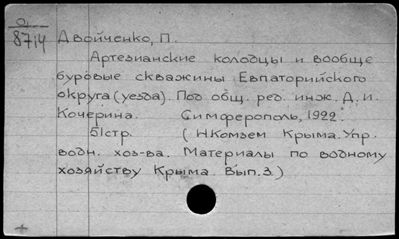 2
8714
Двойченко, П.
Артезианские колодцы и вообще
буровые скважины Евпаторийского
округа (уезда). Под общ. ред. инж. Д. И.
Кочерина. Симферополь, 1922.
51стр. (НКомзем Крыма. Упр.
водн. хоз-ва. Материалы по водному
хозяйству Крыма. Вып.3.)